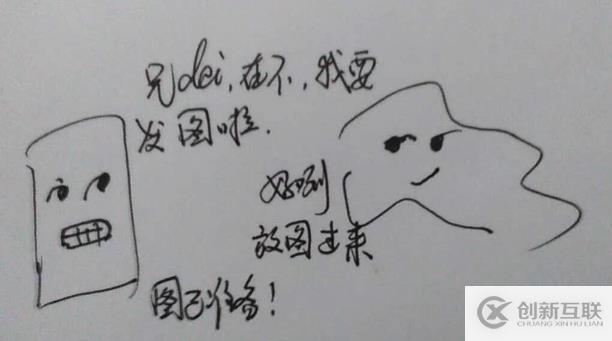 兄dei，在不，我要
发图啦.
好咧
放图过来
图已准备！
创新互联
CHUANG XIN HU LIAN